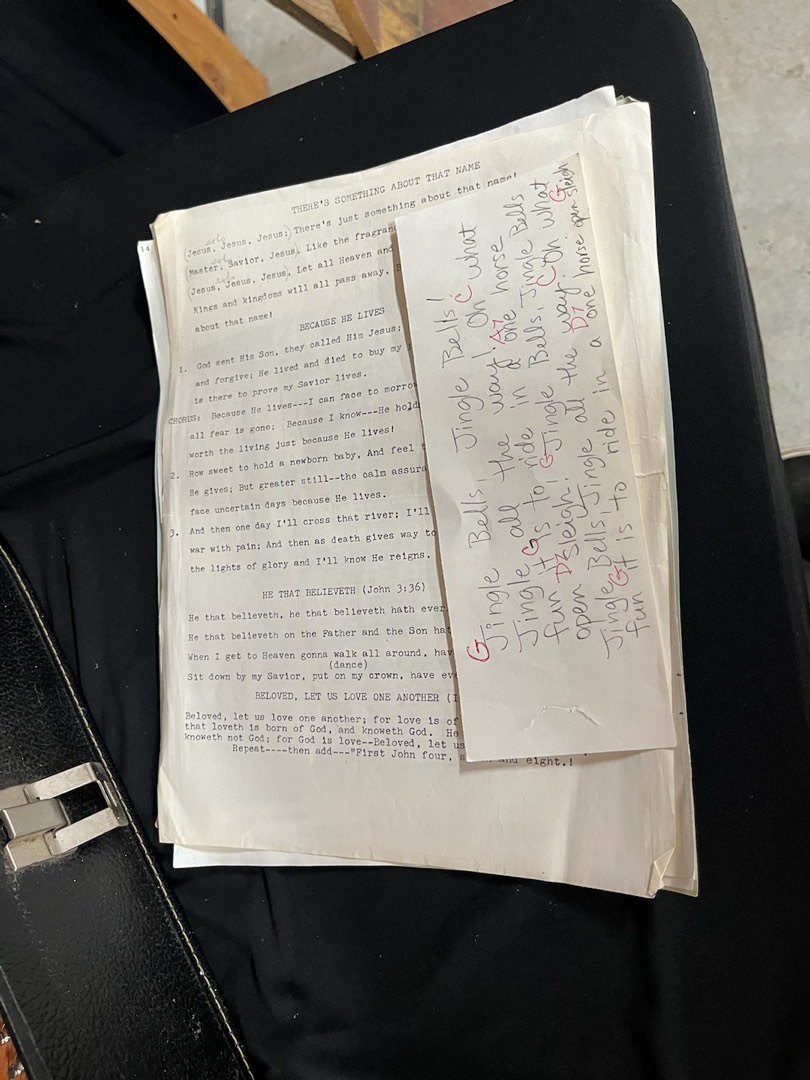 14
THERE'S SOMETHING ABOUT THAT NAME
(Jesus, Jesus, Jesus;) There's just something about that name!
(Master, Savior, Jesus), Like the fragran
(Jesus, Jesus, Jesus), Let all Heaven and
Kings and kingdoms will all pass away, B
about that name!
BECAUSE HE LIVES
1. God sent His Son, they called Him Jesus;
and forgive; He lived and died to buy my
is there to prove my Savior lives.
CHORUS: Because He lives---I can face to morro
all fear is gone; Because I know---He hold
worth the living just because He lives!
2. How sweet to hold a newborn baby, And feel
He gives; But greater still--the calm assura
face uncertain days because He lives.
3. And then one day I'll cross that river; I'll
war with pain; And then as death gives way to
the lights of glory and I'll know He reigns.
HE THAT BELIEVETH (John 3:36)
He that believeth, he that believeth hath ever
He that believeth on the Father and the Son hat
When I get to Heaven gonna walk all around, hav
(dance)
Sit down by my Savior, put on my crown, have eve
BELOVED, LET US LOVE ONE ANOTHER (I
Beloved, let us love one another; for love is of
that loveth is born of God, and knoweth God. He
knoweth not God; for God is love--Beloved, let us
Repeat----then add---"First John four, s and eight.!
G C
Jingle Bells, Jingle Bells!
Jingle all the way! Oh what
G A7
fun it is to ride in a one horse
D7
open sleigh! G Jingle Bells, Jingle Bells
C
Jingle Bells, Jingle all the way! Oh what
G D7 G
fun it is to ride in a one horse open sleigh